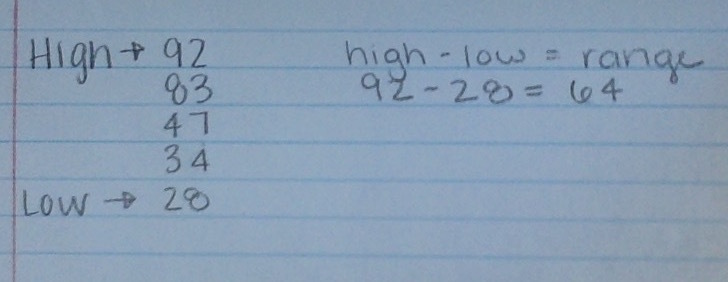 High → 92
83
47
34
Low → 28
high - low = range
92 - 28 = 64